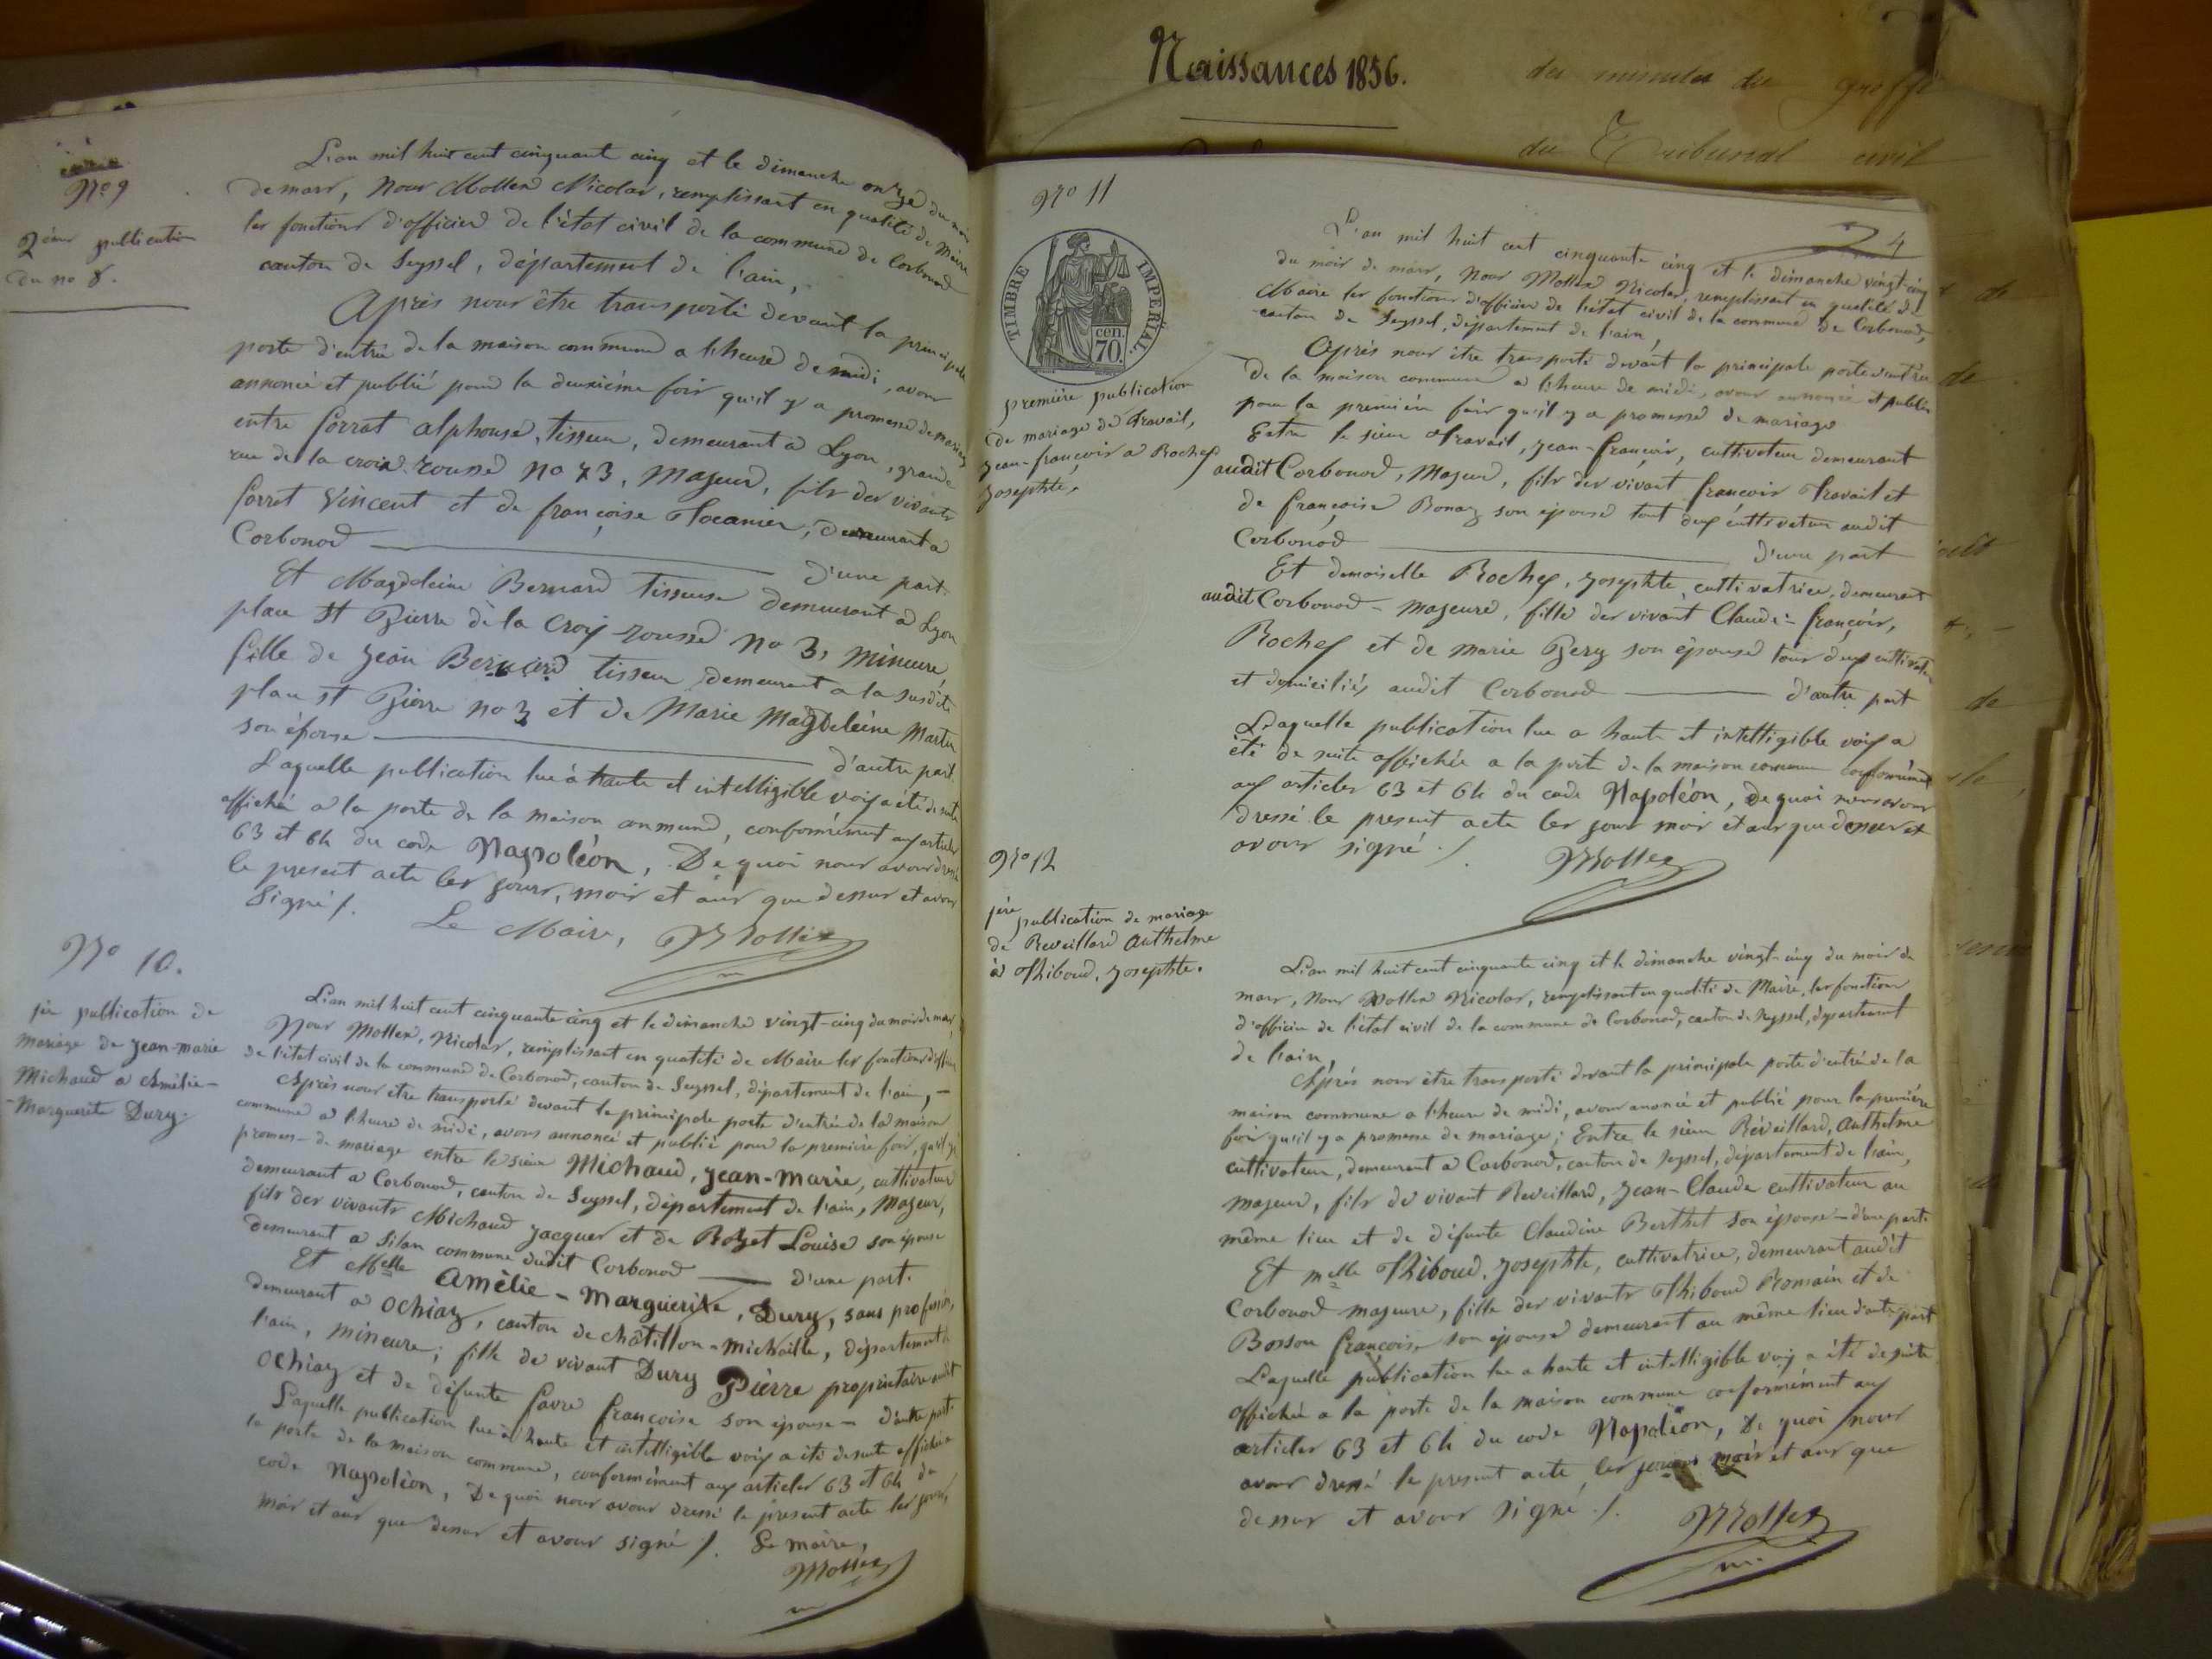 Naissances 1856.
des minutes du greffe
du Tribunal civil
No 9
2ème publication
du no 8.
L'an mil huit cent cinquante cinq et le dimanche onze du mois
de mars, Nous Mollex Nicolas, remplissant en qualité de Maire
les fonctions d'officier de l'état civil de la commune de Corbonod
canton de Seyssel, département de l'ain,
Après nous être transporté devant la principale
porte d'entrée de la maison commune a l'heure de midi, avons
annoncé et publié pour la deuxième fois qu'il y a promesse de mariage
entre forrat alphonse, tisseur, demeurant a Lyon, grande
rue de la croix-rousse no 73, Majeur, fils des vivants
forret Vincent et de françoise , demeurant a
Corbonod d'une part.
Et Magdeleine Bernard tisseuse demeurant a Lyon
place St Pierre de la Croix-rousse no 3, mineure,
fille de Jean Bernard tisseur demeurant a la susdite
place st Pierre no 3 et de Marie Magdeleine Martin
son épouse d'autre part.
Laquelle publication lue à haute et intelligible voix a été de suite
affichée a la porte de la maison commune, conformément aux articles
63 et 64 du code Napoléon, De quoi nous avons dressé
le present acte les jours, mois et ans que dessus et avons
Signé /. Le Maire, Mollex
No 10.
1ère publication de
mariage de Jean-marie
Michaud a Amélie-
-Marguerite Dury.
L'an mil huit cent cinquante cinq et le dimanche vingt-cinq du mois de mars,
Nous Mollex, Nicolas, remplissant en qualité de Maire les fonctions d'officier
de l'état civil de la commune de Corbonod, canton de Seyssel, département de l'ain, -
Après nous être transporté devant la principale porte d'entrée de la maison
commune a l'heure de midi, avons annoncé et publié pour la première fois, qu'il y a
promesse de mariage entre le sieur Michaud, Jean-Marie, cultivateur
demeurant a Corbonod, canton de Seyssel, département de l'ain, Majeur,
fils des vivants Michaud Jacques et de Rozet Louise son épouse
demeurant a Silan commune dudit Corbonod d'une part.
Et Melle Amélie-Marguerite, Dury, sans profession,
demeurant a Ochiaz, canton de châtillon-michaille, département de
l'ain, mineure; fille de vivant Dury Pièrre proprietaire audit
Ochiaz et de défunte favre françoise son épouse - d'autre part.
Laquelle publication lue à haute et intelligible voix a été de suite affichée a
la porte de la maison commune, conformément aux articles 63 et 64 du
code Napoléon, De quoi nous avons dressé le présent acte les jours,
mois et ans que dessus et avons signé /. Le maire,
Mollex
No 11
TIMBRE IMPERIAL.
cen.
70.
première publication
de mariage de Travail,
Jean-françois a Rochex
Josephte,
4
L'an mil huit cent cinquante cinq et le dimanche vingt-cinq
du mois de mars, Nous Mollex Nicolas, remplissant en qualité de
Maire les fonctions d'officier de l'état civil de la commune de Corbonod,
canton de Seyssel, département de l'ain,
Après nous être transporté devant la principale porte d'entrée
De la maison commune a l'heure de midi, avons annoncé et publié
pour la première fois qu'il y a promesse de mariage
Entre le sieur Travail, Jean-françois, cultivateur demeurant
audit Corbonod, Majeur, fils des vivant françois Travail et
de françoise Bonaz son épouse tout deux cultivateur audit
Corbonod d'une part
Et demoiselle Rochex, Josephte, cultivatrice, demeurant
audit Corbonod - majeure, fille des vivant Claude-françois,
Rochex et de marie Gery son épouse tous deux cultivateur
et domiciliés audit Corbonod d'autre part
Laquelle publication lue a haute et intelligible voix a
été de suite affichée a la porte de la maison commune conformément
aux articles 63 et 64 du code Napoléon, De quoi nous avons
dressé le present acte les jour mois et ans que dessus et
avons signé /. Mollex
No 12
1ère publication de mariage
de Reveillard Anthelme
à Thiboud, Josephte.
L'an mil huit cent cinquante cinq et le dimanche vingt-cinq du mois de
mars, Nous Mollex Nicolas, remplissant en qualité de Maire, les fonctions
d'officier de l'état civil de la commune de Corbonod, canton de Seyssel, departement
de l'ain,
Après nous être transporté devant la principale porte d'entrée de la
maison commune a l'heure de midi, avons anoncé et publié pour la première
fois qu'il y a promesse de mariage; Entre le sieur Réveillard, Anthelme
cultivateur, demeurant a Corbonod, canton de Seyssel, département de l'ain,
majeur, fils de vivant Reveillard, Jean-Claude cultivateur au
même lieu et de défunte Claudine Berthet son épouse - d'une part.
Et melle Thiboud, Josephte, cultivatrice, demeurant audit
Corbonod majeure, fille des vivants Thiboud Romain et de
Bosson françoise, son épouse demeurant au même lieu d'autre part
Laquelle publication lue a haute et intelligible voix a été de suite
affichée a la porte de la maison commune conformément aux
articles 63 et 64 du code Napoléon, De quoi nous
avons dressé le present acte, les jours mois et ans que
dessus et avons signé /.
Mollex